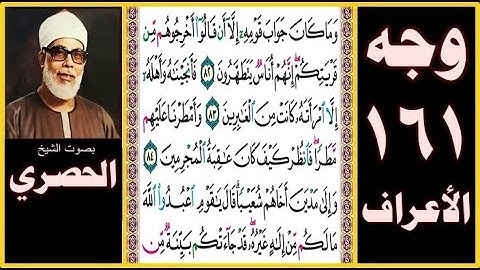 وجه
١٦١
الأعراف
بصوت الشيخ
الحصري
وَمَا كَانَ جَوَابَ قَوْمِهِۦٓ إِلَّآ أَن قَالُوٓا۟ أَخْرِجُوهُم مِّن
قَرْيَتِكُمْ ۖ إِنَّهُمْ أُنَاسٌ يَتَطَهَّرُونَ ٨٢ فَأَنجَيْنَٰهُ وَأَهْلَهُۥٓ
إِلَّا ٱمْرَأَتَهُۥ كَانَتْ مِنَ ٱلْغَٰبِرِينَ ٨٣ وَأَمْطَرْنَا عَلَيْهِم
مَّطَرًا ۖ فَٱنظُرْ كَيْفَ كَانَ عَٰقِبَةُ ٱلْمُجْرِمِينَ ٨٤
وَإِلَىٰ مَدْيَنَ أَخَاهُمْ شُعَيْبًا ۗ قَالَ يَٰقَوْمِ ٱعْبُدُوا۟ ٱللَّهَ
مَا لَكُم مِّنْ إِلَٰهٍ غَيْرُهُۥ ۖ قَدْ جَآءَتْكُم بَيِّنَةٌ مِّن